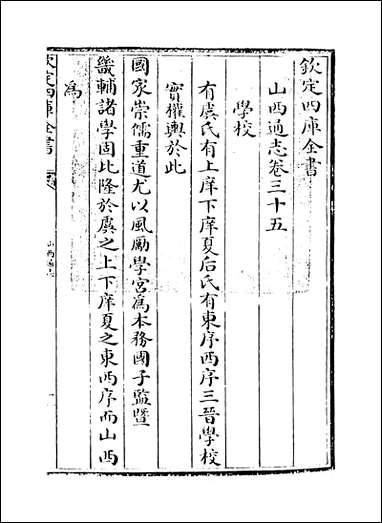 欽定四庫全書
山西通志卷三十五
學校
有虞氏有上庠下庠夏后氏有東序西序三晉學校
實權輿於此
國家崇儒重道尤以風勵學宫為本務國子監暨
畿輔諸學固比隆於虞之上下庠夏之東西序而山西
為
欽定四庫全書
山西通志